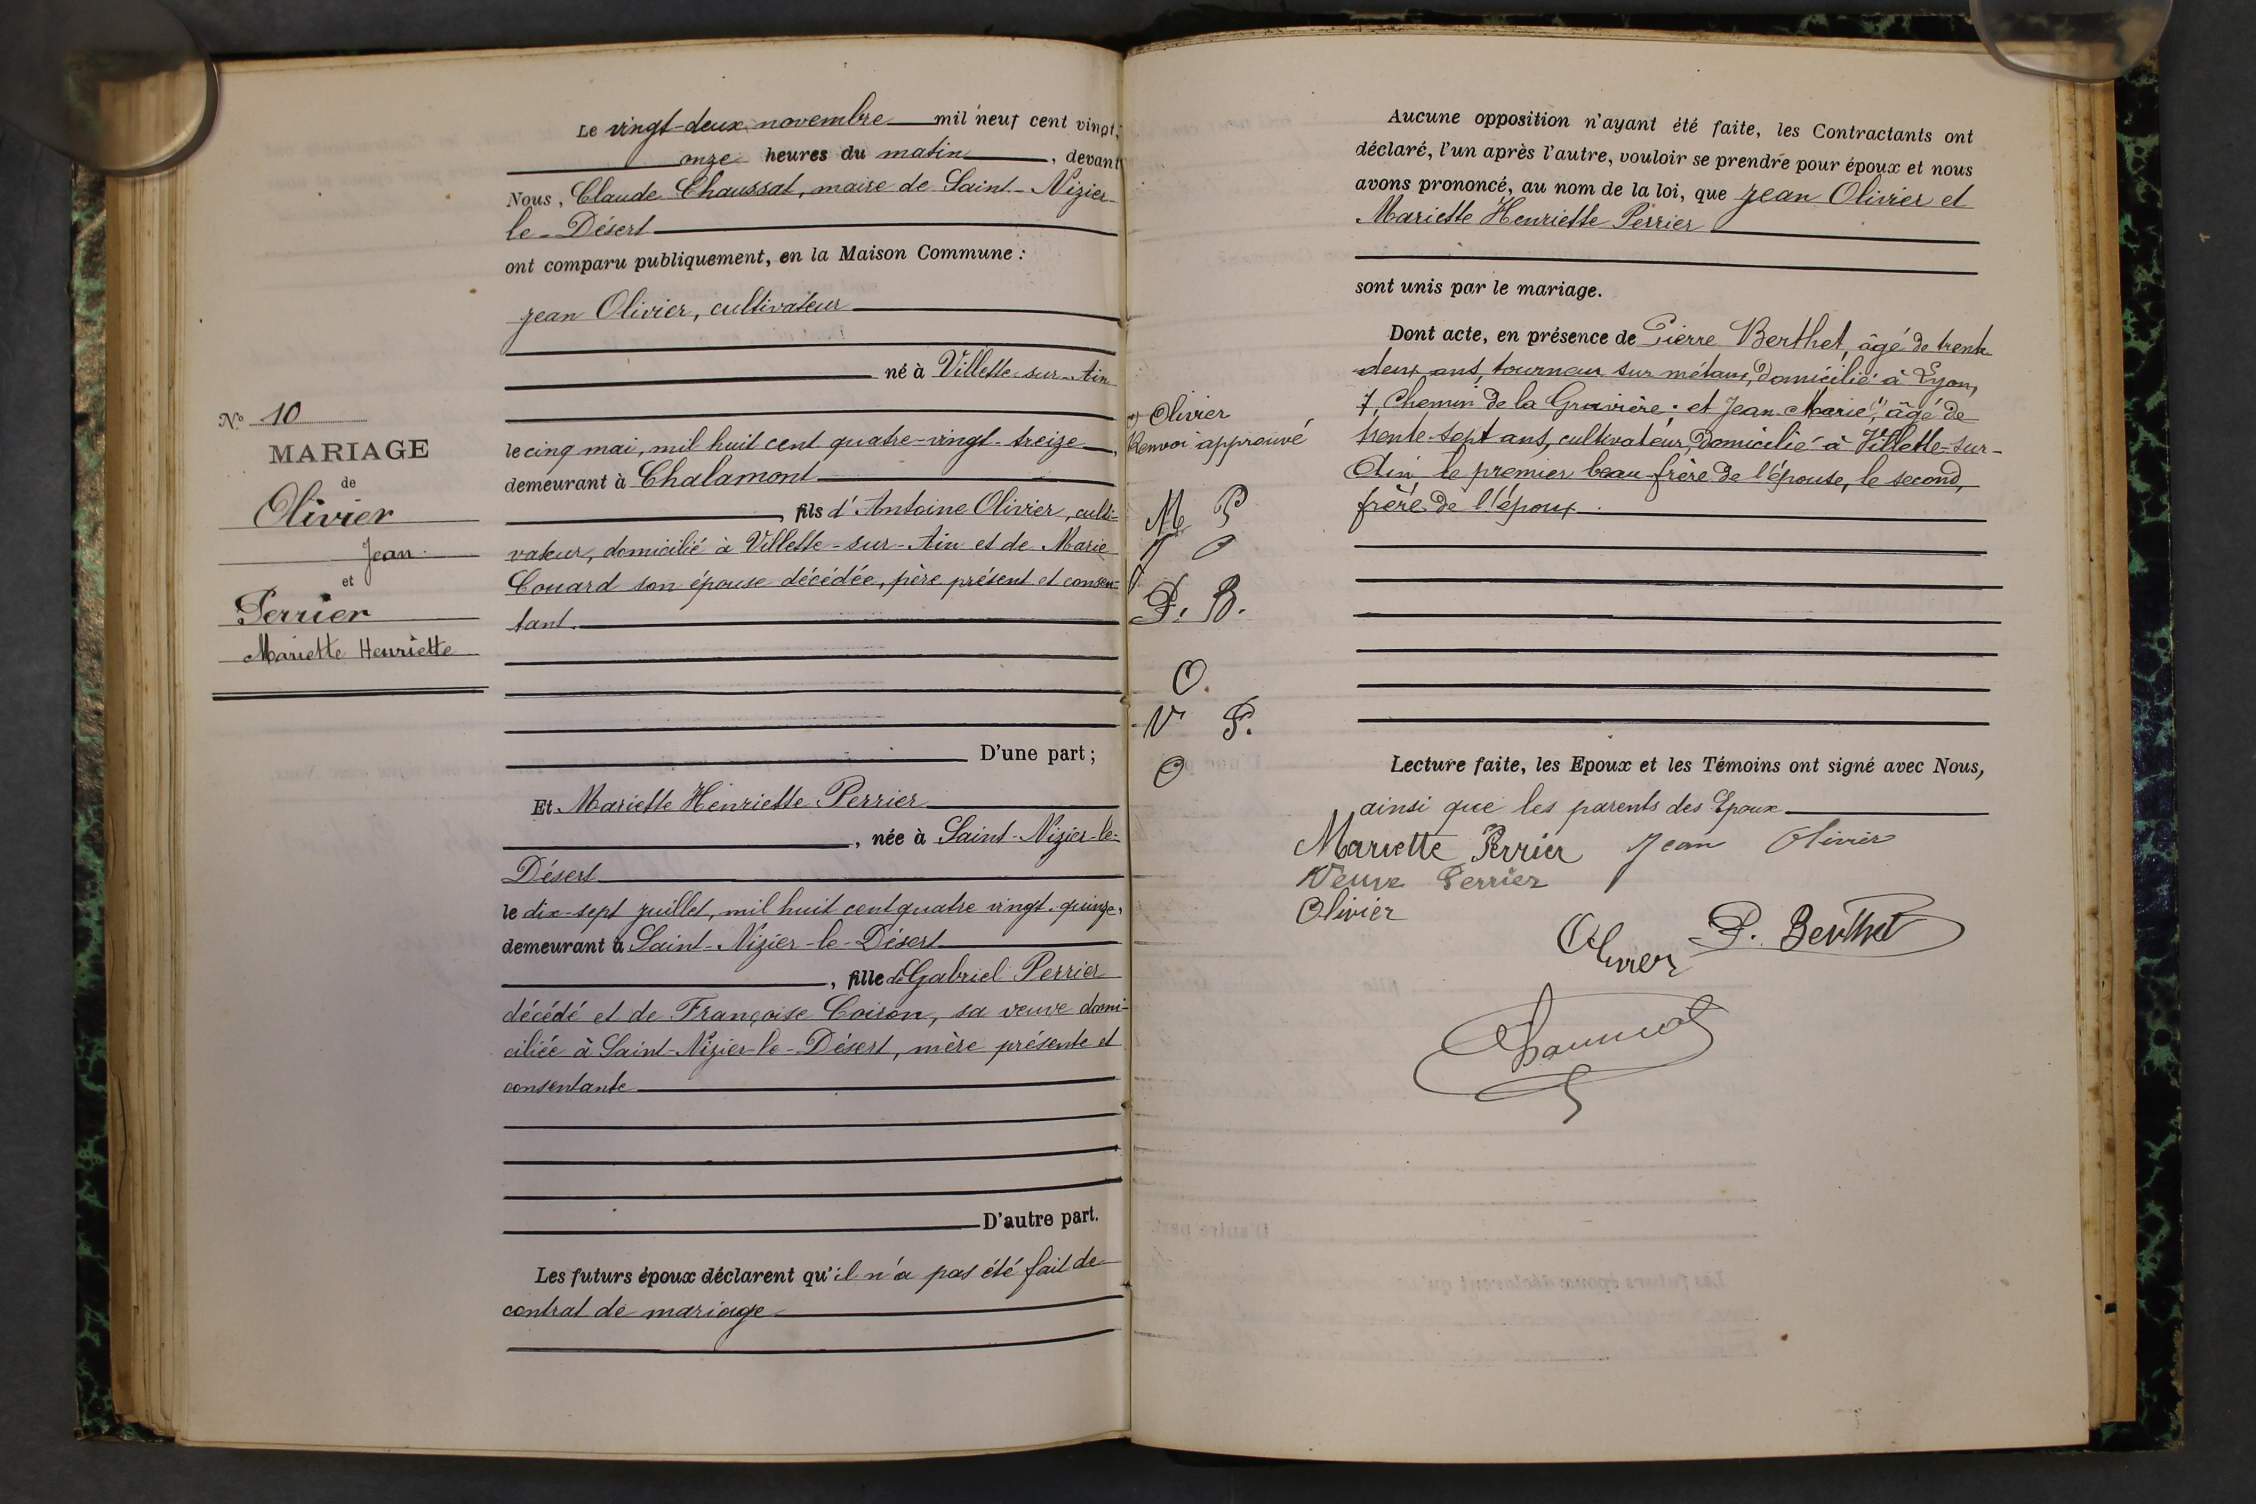 Le vingt-deux novembre mil neuf cent vingt,
onze heures du matin, devant
Nous, Claude Chaussat, maire de Saint-Nizier-
le-Désert
ont comparu publiquement, en la Maison Commune :
Jean Olivier, cultivateur
né à Villette-sur-Ain
le cinq mai, mil huit cent quatre-vingt-treize,
demeurant à Chalamont
, fils d'Antoine Olivier, culti-
vateur, domicilié à Villette-sur-Ain et de Marie
Couard son épouse décédée, père présent et consen-
tant.
D'une part ;
Et Mariette Henriette Perrier
, née à Saint-Nizier-le-
Désert
le dix-sept juillet, mil huit cent quatre vingt-quinze,
demeurant à Saint-Nizier-le-Désert
, fille de Gabriel Perrier
décédé et de Françoise Coiron, sa veuve domi-
ciliée à Saint-Nizier-le-Désert, mère présente et
consentante
D'autre part.
Les futurs époux déclarent qu'il n'a pas été fait de
contrat de mariage
N° 10
MARIAGE
de
Olivier
Jean
et
Perrier
Mariette Henriette
Aucune opposition n'ayant été faite, les Contractants ont
déclaré, l'un après l'autre, vouloir se prendre pour époux et nous
avons prononcé, au nom de la loi, que Jean Olivier et
Mariette Henriette Perrier
sont unis par le mariage.
Dont acte, en présence de Pierre Berthet, âgé de trente
deux ans, tourneur sur métaux, domicilié à Lyon,
7, Chemin de la Gravière ; et Jean-Marie, âgé de
trente-sept ans, cultivateur, domicilié à Villette-sur-
Ain, le premier beau-frère de l'épouse, le second,
frère de l'époux.
Olivier
Renvoi approuvé
M P
J O
P. B.
O.
V P.
O
Lecture faite, les Epoux et les Témoins ont signé avec Nous,
ainsi que les parents des Epoux
Mariette Perrier Jean Olivier
Veuve Perrier
Olivier
Olivier P. Berthet
Chaussat